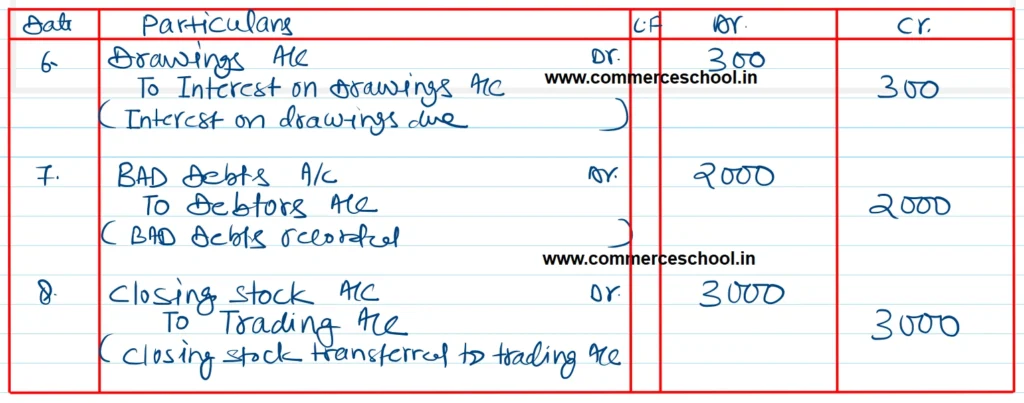 Date Particulars L.F Dr. Cr.
6. Drawings A/C Dr. 300
www.commerceschool.in
To Interest on Drawings A/C 300
( Interest on drawings due )
7. BAD Debts A/C Dr. 2000
To Debtors A/C 2000
( BAD Debts recorded )
www.commerceschool.in
8. Closing stock A/C Dr. 3000
To Trading A/C 3000
( Closing stock transferred to trading A/C